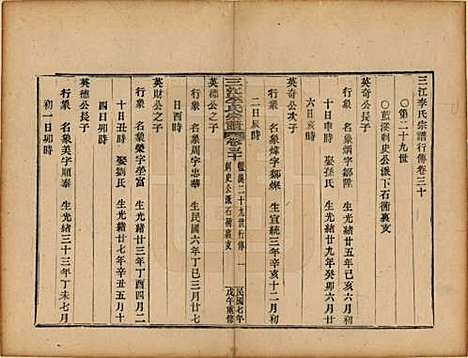 三江李氏宗譜行傳卷三十
○第二十九世
○藍溪刺史公派下石衕裏支
英奇公長子
行象 名象炳字鄒陞 生光緒廿九年癸卯六月廿
六日亥時
英奇公三子
行象 名象煒字鄒燦 生宣統三年辛亥十月初
二日辰時
三江李氏宗譜 卷三十
藍溪二十九世行傳 一
刺史公派石衕裏支
民國七年
戊午重修
英德公之子
行象 名象周字忠華 生民國六年丁巳三月廿七
日酉時
英財公之子
行象 名象榮字榮富 生光緒廿七年辛丑五月十
十日丑時 娶孫氏 生光緒廿三年丁酉四月二
四日卯時
英德公長子
行象 名象美字順泰 生光緒三十三年丁未七月
初一日卯時